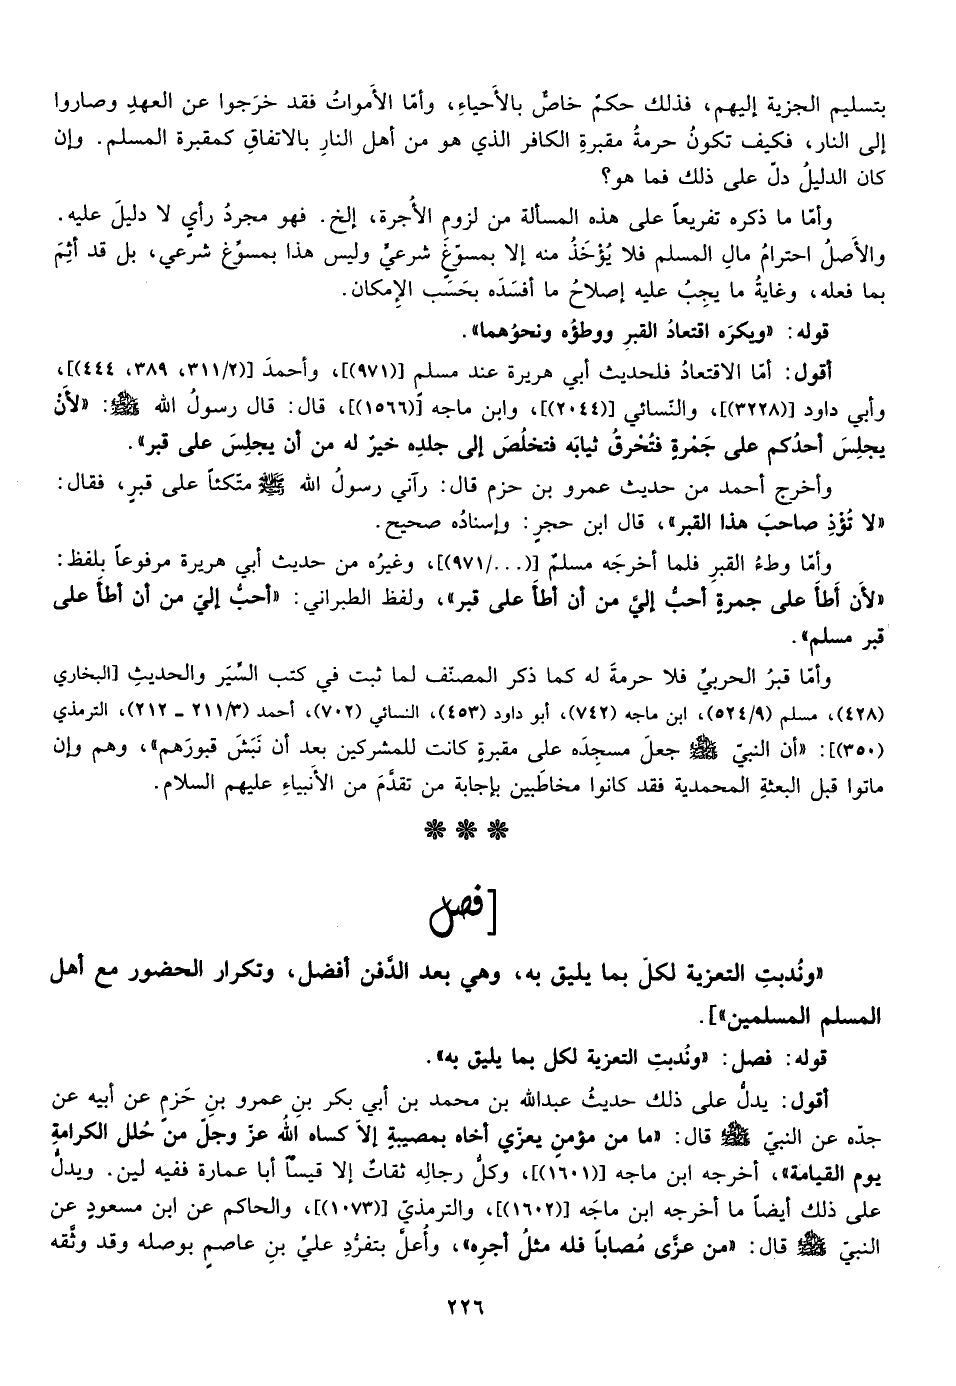 بتسليم الجزية إليهم، فذلك حكمٌ خاصٌّ بالأَحياءِ، وأمّا الأَمواتُ فقد خرَجوا عن العهدِ وصاروا
إلى النار، فكيف تكونُ حرمةُ مقبرةِ الكافر الذي هو من أهل النارِ بالاتفاقِ كمقبرة المسلم. وإن
كان الدليلُ دلّ على ذلك فما هو؟
وأمّا ما ذكره تفريعاً على هذه المسألة من لزوم الأُجرة، إلخ. فهو مجردُ رأيٍ لا دليلَ عليه.
والأَصلُ احترامُ مالِ المسلم فلا يُؤْخَذُ منه إلا بمسوّغَ شرعيٍّ وليس هذا بمسوِّغ شرعي، بل قد أَثِمَ
بما فعله، وغايةُ ما يجِبُ عليه إصلاحُ ما أفسَدَه بحَسَب الإِمكان.
قوله: «ويكرَه اقتعادُ القبرِ ووطؤُه ونحوُهما».
أقول: أمّا الاقتعادُ فلحديث أبي هريرة عند مسلم [(٩٧١)]، وأحمدَ [(٣١١/٢، ٣٨٩، ٤٤٤)]،
وأبي داود [(٣٢٢٨)]، والنّسائي [(٢٠٤٤)]، وابن ماجه [(١٥٦٦)]، قال: قال رسولُ الله ﷺ: «لأَنْ
يجلِسَ أحدُكم على جَمْرةٍ فتُحْرقُ ثيابَه فتخلُصَ إلى جلدِه خيرٌ له من أن يجلِسَ على قبر».
وأخرج أحمد من حديث عمرو بن حزم قال: رآني رسولُ الله ﷺ متّكئاً على قبرٍ، فقال:
«لا تُؤْذِ صاحبَ هذا القبر»، قال ابن حجرٍ: وإسنادُه صحيح.
وأمّا وطءُ القبرِ فلما أخرجَه مسلمٌ [(.../٩٧١)]، وغيرُه من حديث أبي هريرة مرفوعاً بلفظ:
«لأَن أَطأَ على جمرةٍ أحبُّ إليّ من أن أَطأَ على قبر»، ولفظ الطبراني: «أحبُّ إليّ من أن أطأَ على
قبر مسلم».
وأمّا قبرُ الحربيِّ فلا حرمةَ له كما ذكر المصنّف لما ثبت في كتب السِّيَر والحديثِ [البخاري
(٤٢٨)، مسلم (٥٢٤/٩)، ابن ماجه (٧٤٢)، أبو داود (٤٥٣)، النسائي (٧٠٢)، أحمد (٢١١/٣ ـ ٢١٢)، الترمذي
(٣٥٠)]: «أن النبيّ ﷺ جعلَ مسجِدَه على مقبرةٍ كانت للمشركين بعد أن نَبَشَ قبورَهم»، وهم وإن
ماتوا قبل البعثةِ المحمدية فقد كانوا مخاطَبين بإجابة من تقدَّمَ من الأَنبياءِ عليهم السلام.
❊ ❊ ❊
[فصل
«ونُدبتِ التعزية لكلّ بما يليق به، وهي بعد الدَّفن أفضل، وتكرار الحضور مع أهل
المسلم المسلمين»].
قوله: فصل: «ونُدبتِ التعزية لكل بما يليق به».
أقول: يدلُّ على ذلك حديثُ عبدالله بن محمد بن أبي بكر بنِ عمرو بنِ حَزم عن أبيه عن
جدّه عن النبيّ ﷺ قال: «ما من مؤمنٍ يعزّي أخاه بمصيبةٍ إلاّ كساه اللهُ عزّ وجلّ منْ حُلل الكرامةِ
يوم القيامة»، أخرجه ابن ماجه [(١٦٠١)]، وكلُّ رجالِه ثقاتٌ إلا قيساً أبا عمارة ففيه لين. ويدلُّ
على ذلك أيضاً ما أخرجه ابن ماجَه [(١٦٠٢)]، والترمذيّ [(١٠٧٣)]، والحاكم عن ابن مسعودٍ عن
النبيّ ﷺ قال: «من عزَّى مُصاباً فله مثلُ أجرِه»، وأُعلَّ بتفرُّدِ عليِّ بنِ عاصمٍ بوصله وقد وثَّقه
٢٢٦